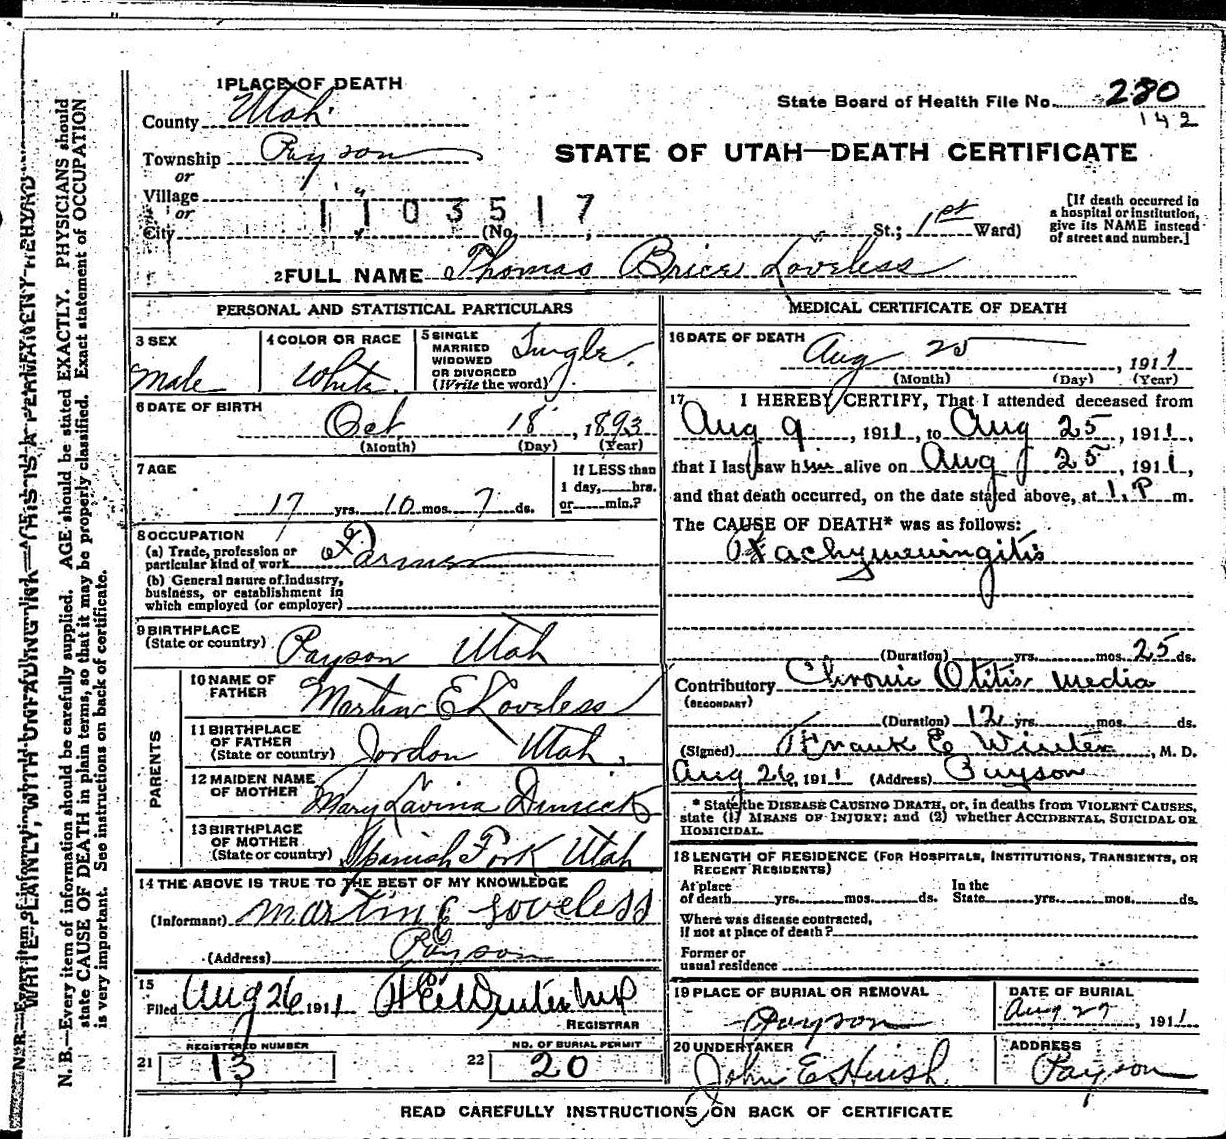 1 PLACE OF DEATH
County Utah
State Board of Health File No. 280
142
Township Payson
or
STATE OF UTAH—DEATH CERTIFICATE
Village
or
1103517
City (No. , St.; 1st Ward)
[If death occurred in a hospital or institution, give its NAME instead of street and number.]
2 FULL NAME Thomas Brice Loveless
PERSONAL AND STATISTICAL PARTICULARS
3 SEX
Male
4 COLOR OR RACE
White
5 SINGLE
MARRIED
WIDOWED
OR DIVORCED
(Write the word)
Single
6 DATE OF BIRTH
Oct 18, 1893
(Month) (Day) (Year)
7 AGE
17 yrs. 10 mos. 7 ds.
If LESS than
1 day, hrs.
or min.?
8 OCCUPATION
(a) Trade, profession or
particular kind of work Farmer
(b) General nature of industry,
business, or establishment in
which employed (or employer)
9 BIRTHPLACE
(State or country) Payson Utah
PARENTS
10 NAME OF
FATHER Martin E Loveless
11 BIRTHPLACE
OF FATHER
(State or country) Jordon Utah.
12 MAIDEN NAME
OF MOTHER Mary Lavina Dimick
13 BIRTHPLACE
OF MOTHER
(State or country) Spanish Fork Utah
14 THE ABOVE IS TRUE TO THE BEST OF MY KNOWLEDGE
(Informant) Martin E Loveless
(Address) Payson
15
Filed Aug 26 1911
REGISTRAR
REGISTERED NUMBER
21 13
NO. OF BURIAL PERMIT
22 20
MEDICAL CERTIFICATE OF DEATH
16 DATE OF DEATH
Aug 25, 1911
(Month) (Day) (Year)
17 I HEREBY CERTIFY, That I attended deceased from
Aug 9, 1911, to Aug 25, 1911,
that I last saw him alive on Aug 25, 1911,
and that death occurred, on the date stated above, at 1.P m.
The CAUSE OF DEATH* was as follows:
Pachymeningitis
(Duration) yrs. mos. 25 ds.
Contributory Chronic Otitis Media
(SECONDARY)
(Duration) 12 yrs. mos. ds.
(Signed) Frank E , M. D.
Aug 26 1911 (Address) Payson
* State the DISEASE CAUSING DEATH, or, in deaths from VIOLENT CAUSES,
state (1) MEANS OF INJURY; and (2) whether ACCIDENTAL, SUICIDAL OR
HOMICIDAL.
18 LENGTH OF RESIDENCE (FOR HOSPITALS, INSTITUTIONS, TRANSIENTS, OR
RECENT RESIDENTS)
At place
of death yrs. mos. ds.
In the
State yrs. mos. ds.
Where was disease contracted,
if not at place of death?
Former or
usual residence
19 PLACE OF BURIAL OR REMOVAL
Payson
DATE OF BURIAL
Aug 27, 1911
20 UNDERTAKER
John E Huish
ADDRESS
Payson
READ CAREFULLY INSTRUCTIONS ON BACK OF CERTIFICATE
WRITE PLAINLY, WITH UNFADING INK—THIS IS A PERMANENT RECORD
N. B.—Every item of information should be carefully supplied. AGE should be stated EXACTLY. PHYSICIANS should
state CAUSE OF DEATH in plain terms, so that it may be properly classified. Exact statement of OCCUPATION
is very important. See instructions on back of certificate.